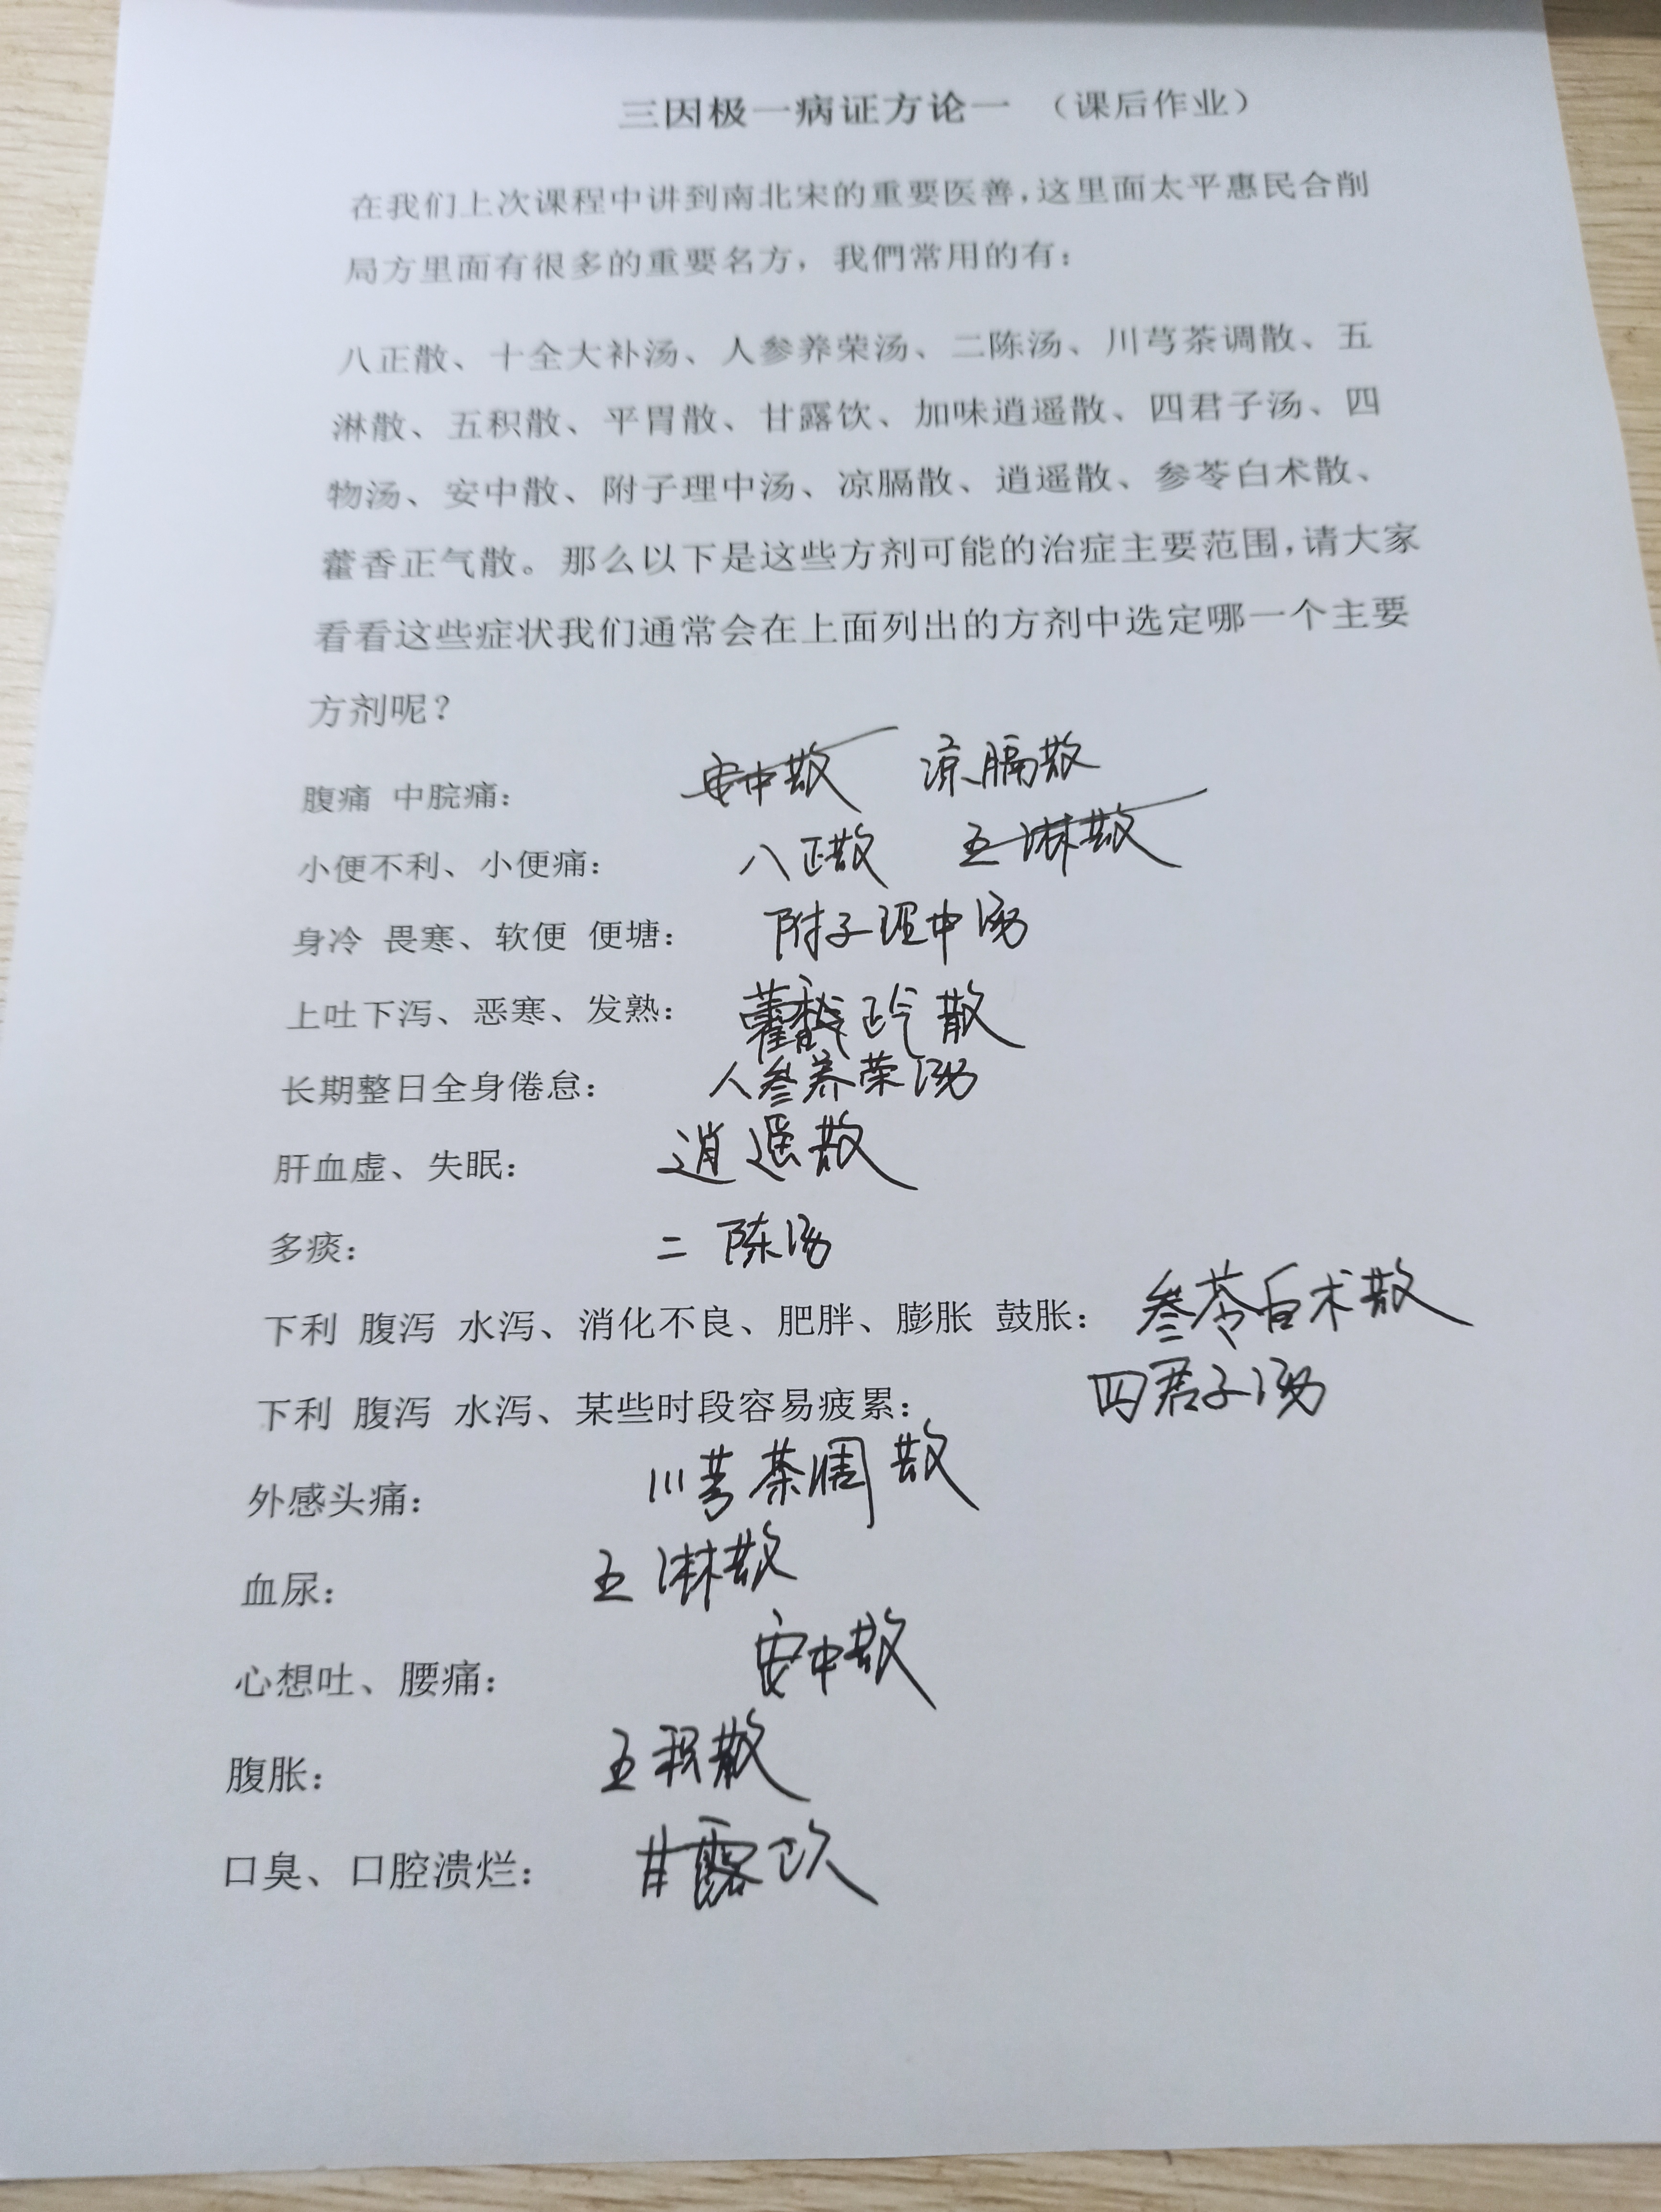 三因极一病证方论一 （课后作业）
在我们上次课程中讲到南北宋的重要医善，这里面太平惠民合削
局方里面有很多的重要名方，我們常用的有：
八正散、十全大补汤、人参养荣汤、二陈汤、川芎茶调散、五
淋散、五积散、平胃散、甘露饮、加味逍遥散、四君子汤、四
物汤、安中散、附子理中汤、凉膈散、逍遥散、参苓白术散、
藿香正气散。那么以下是这些方剂可能的治症主要范围，请大家
看看这些症状我们通常会在上面列出的方剂中选定哪一个主要
方剂呢？
腹痛 中脘痛： 安中散 凉膈散
小便不利、小便痛： 八正散 五淋散
身冷 畏寒、软便 便塘： 附子理中汤
上吐下泻、恶寒、发熟： 藿香正气散
长期整日全身倦怠： 人参养荣汤
肝血虚、失眠： 逍遥散
多痰： 二陈汤
下利 腹泻 水泻、消化不良、肥胖、膨胀 鼓胀： 参苓白术散
下利 腹泻 水泻、某些时段容易疲累： 四君子汤
外感头痛： 川芎茶调散
血尿： 五淋散
心想吐、腰痛： 安中散
腹胀： 五积散
口臭、口腔溃烂： 甘露饮